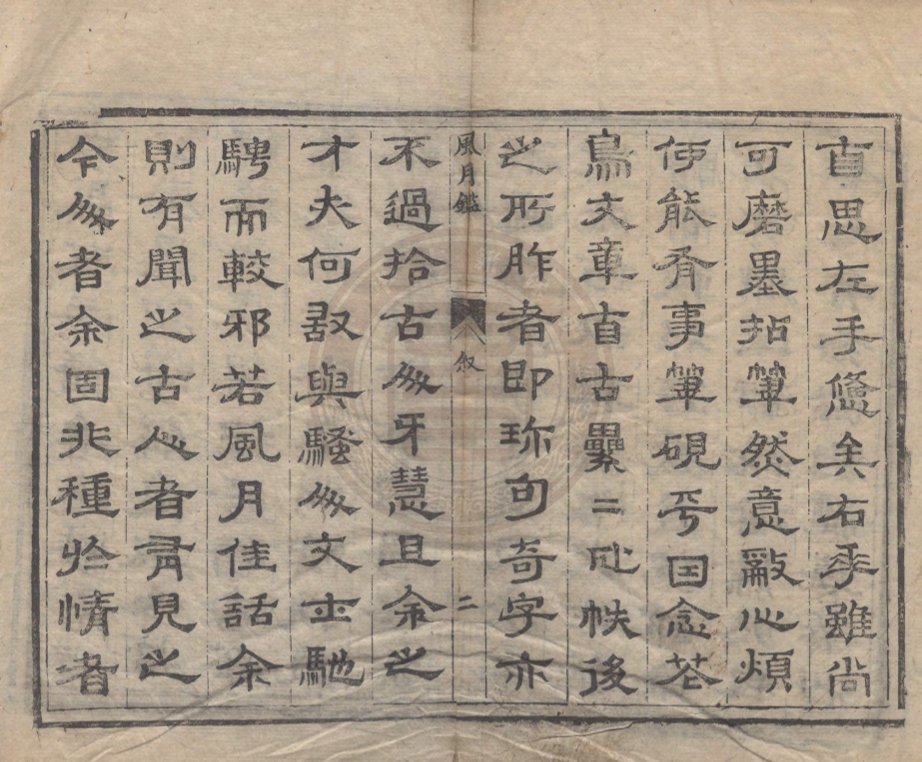 自思左手憊矣右手雖尚
可磨墨拈筆然意散心煩
何能有事筆硯乎因念花
鳥文章自古纍二成帙後
之所作者即珍句奇字亦
風月鑑 叙 二
不過拾古人牙慧且余之
才夫何敢與騷人文士馳
騁而較邪若風月佳話余
則有聞之古人者有見之
今人者余固非種於情者